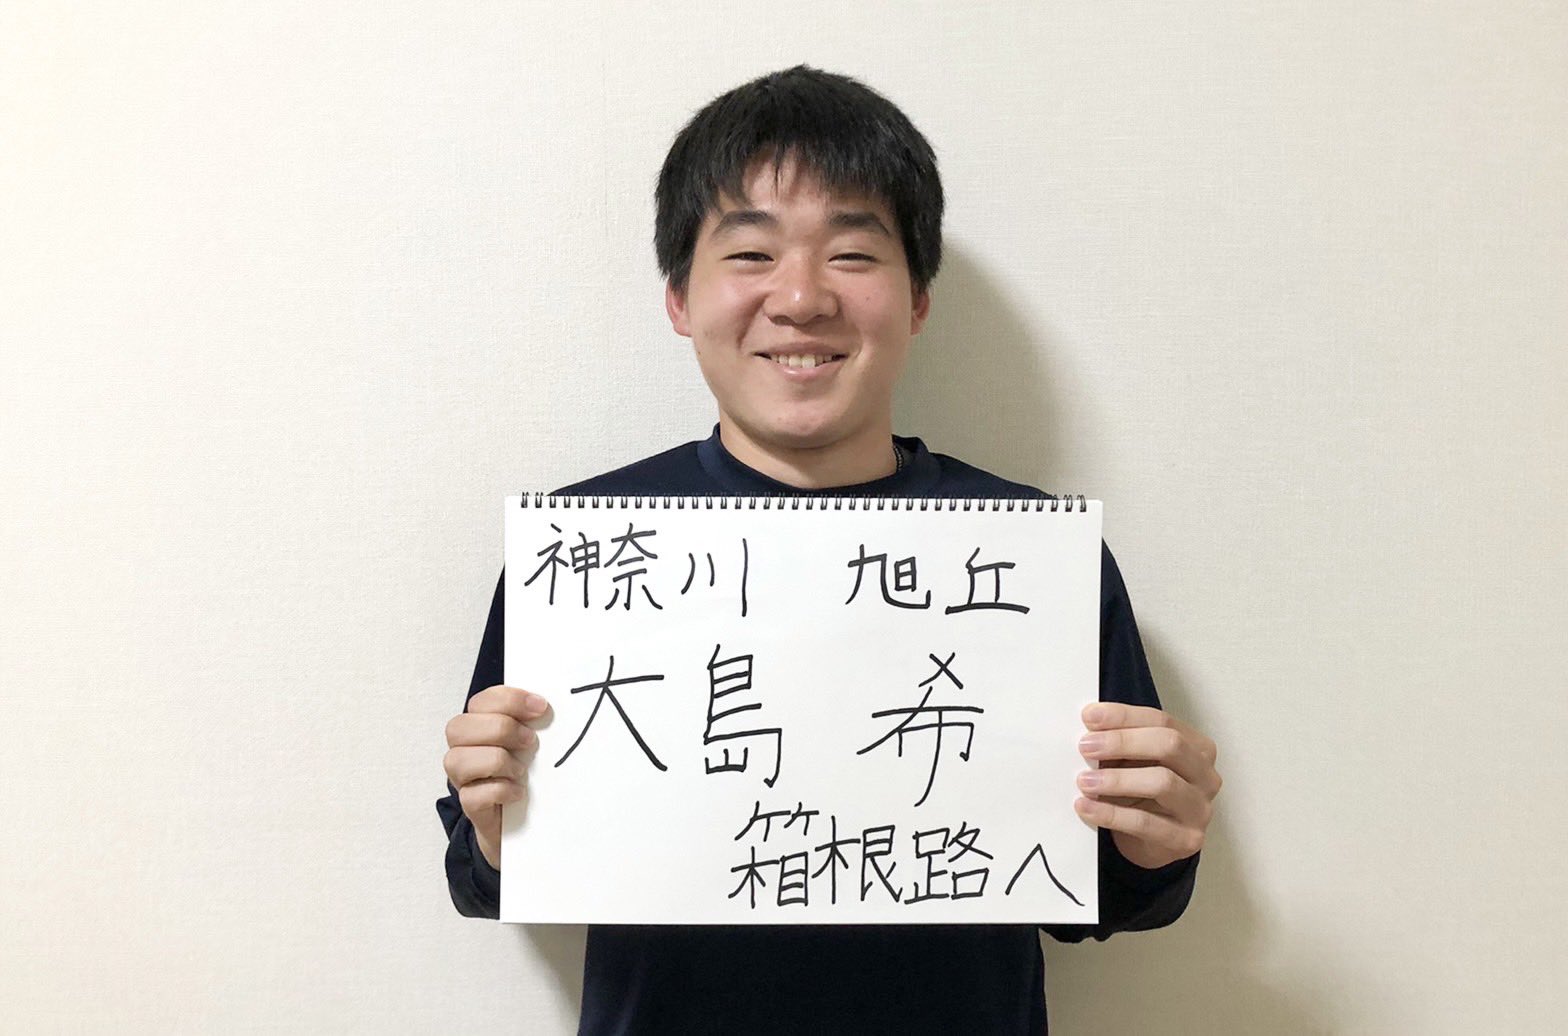 神奈川 旭丘
大島 希
箱根路へ